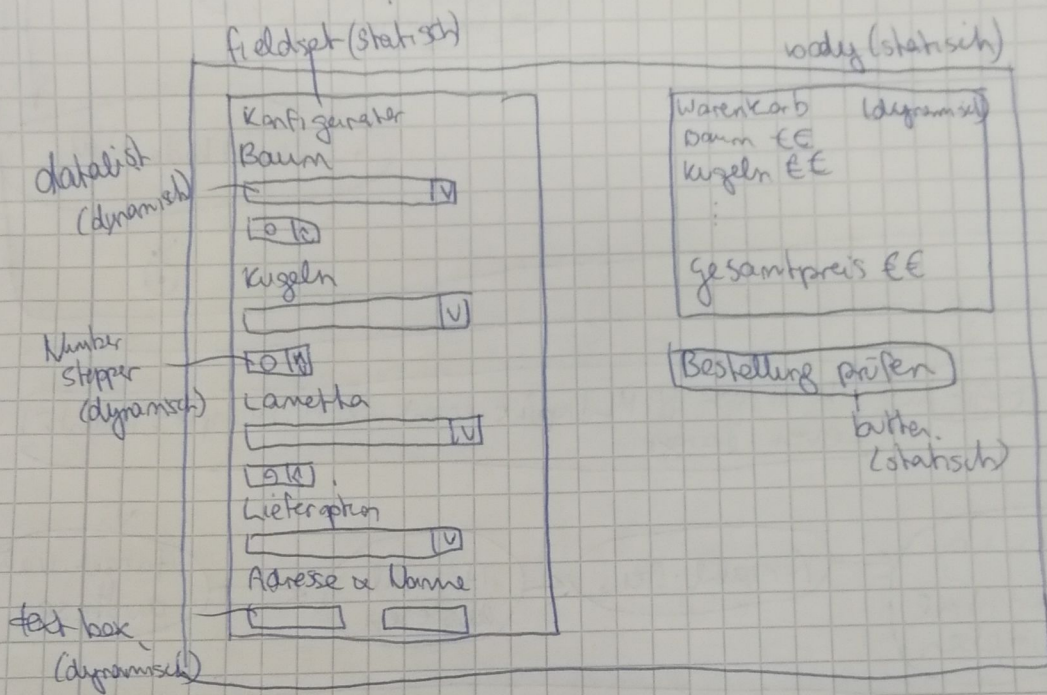 fieldset (statisch)
body (statisch)
Konfigurator
Baum
datalist
(dynamisch)
Kugeln
Number
stepper
(dynamisch)
Lametta
Lieferoption
Adresse & Name
text box
(dynamisch)
Warenkorb (dynamisch)
Baum €€
Kugeln €€
⋮
Gesamtpreis €€
Bestellung prüfen
button.
(statisch)